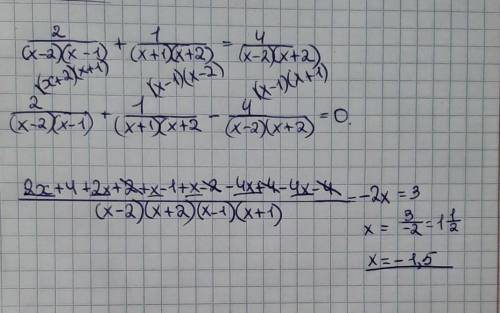 2/((x-2)(x-1)) + 1/((x+1)(x+2)) = 4/((x-2)(x+2))
(x+2)(x+1) (x-1)(x-2) (x-1)(x+1)
2/((x-2)(x-1)) + 1/((x+1)(x+2) - 4/((x-2)(x+2)) = 0.
(2x+4+2x+2+x-1+x-2-4x+4-4x-4)/((x-2)(x+2)(x-1)(x+1)) = -2x = 3
x = 3/-2 = 1 1/2
x = -1,5